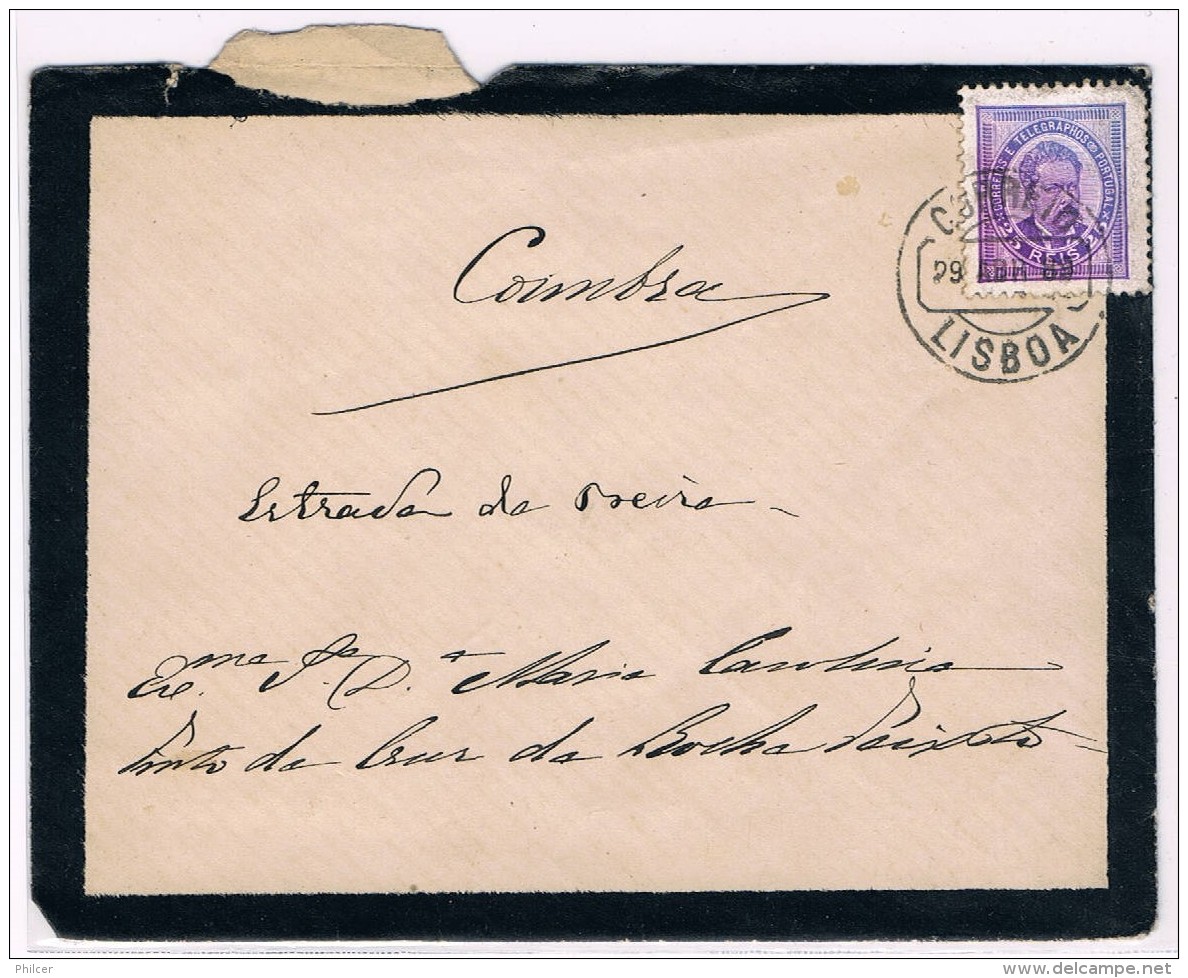 CORREIOS E TELEGRAPHOS PORTUGAL
25 REIS
CORREIO
29 ABR 89
LISBOA
Coimbra
Estrada da Beira
Ex.ma S.ra D.a Maria Carolina
Pinto da Cruz da Rocha Peixoto
Philcer
www.delcampe.net